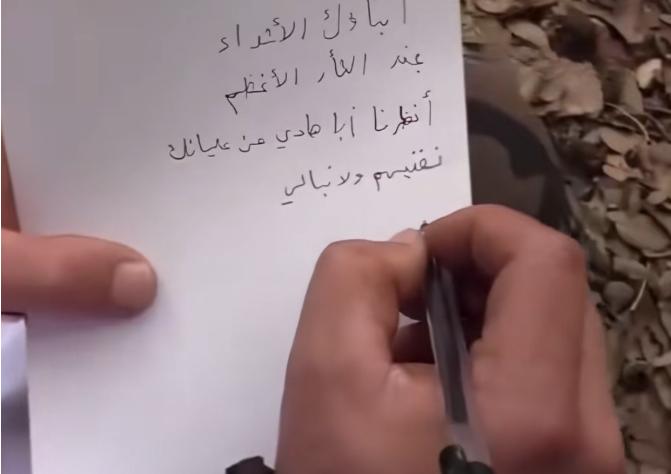 أباؤك الأشداء
جند الثأر الأعظم
أنظرنا أبا هادي من عليائك
نفنيهم ولا نبالي